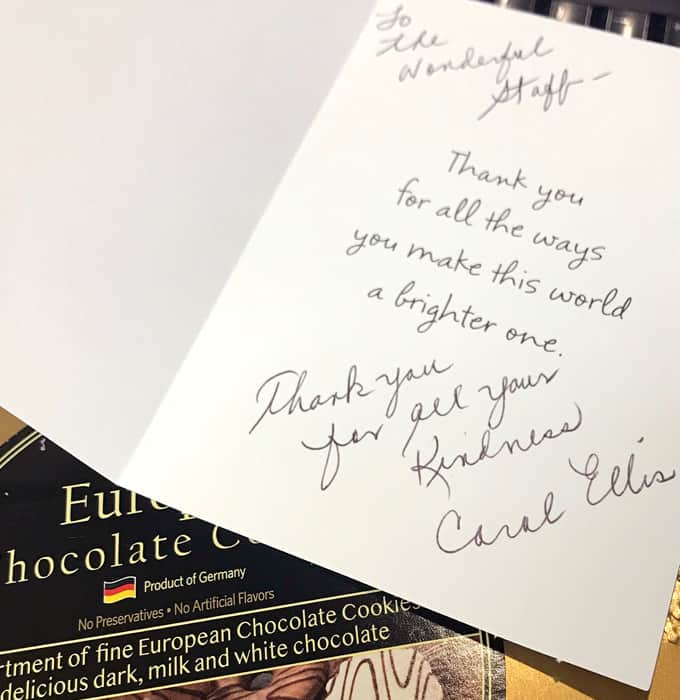 To
the
Wonderful
Staff-
Thank you
for all the ways
you make this world
a brighter one.
Thank you
for all your
Kindness
Carol Ellis
hocolate
Product of Germany
No Preservatives • No Artificial Flavors
rtment of fine European Chocolate Cookies
delicious dark, milk and white chocolate